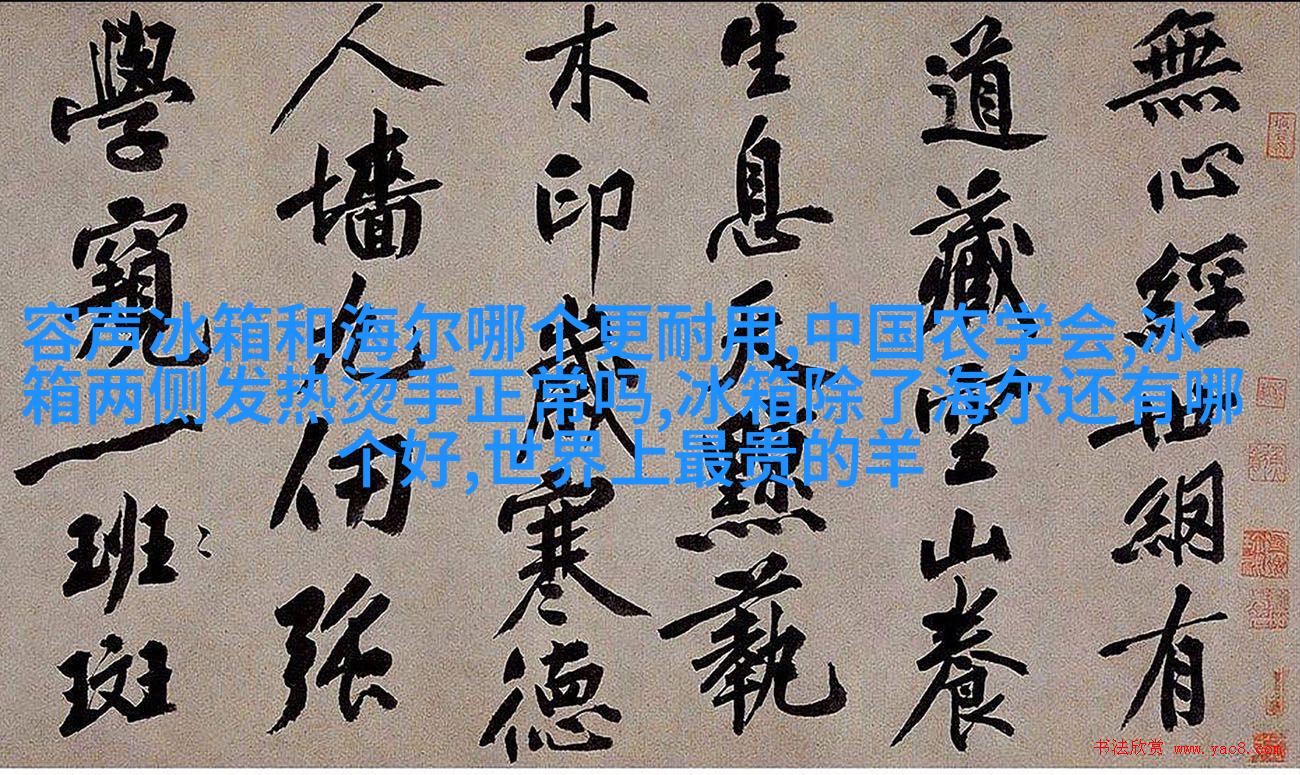 無心經世網有
道藏丘山養
生息天黥蓺
木印歲寒德
人墻九仞強
學窺一班斑
容声冰箱和海尔哪个更耐用,中国农学会,冰
箱两侧发热烫手正常吗,冰箱除了海尔还有哪
个好,世界上最贵的羊
书法欣赏 www.yac8.com